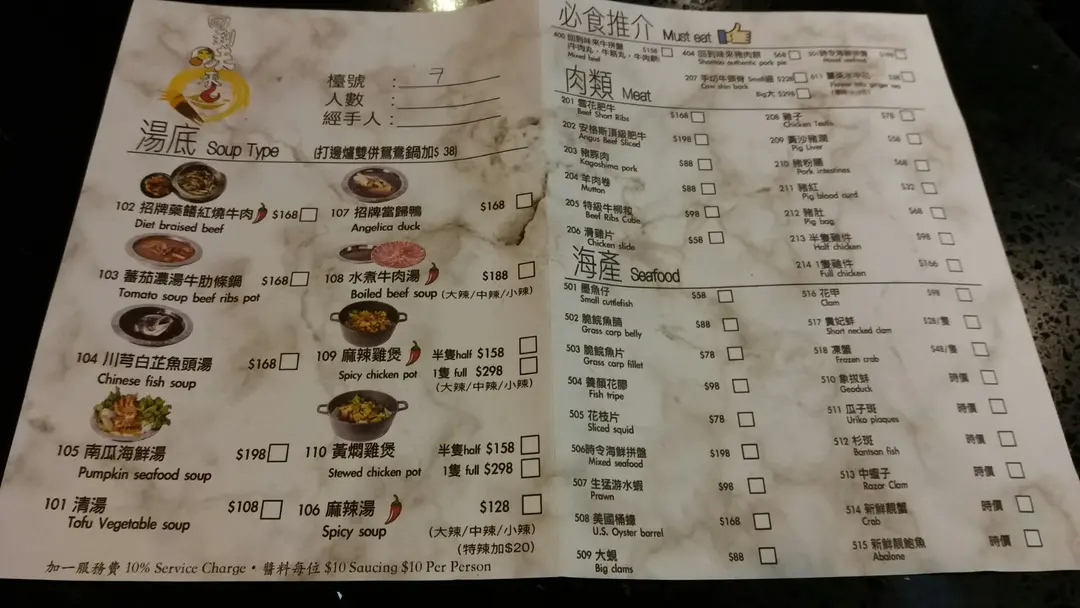 回到味來
檯號 : 7
人數 :
經手人 :
湯底 Soup Type (打邊爐雙併鴛鴦鍋加$ 38)
102 招牌藥膳紅燒牛肉 $168
Diet braised beef
107 招牌當歸鴨 $168
Angelica duck
103 蕃茄濃湯牛肋條鍋 $168
Tomato soup beef ribs pot
108 水煮牛肉湯 $188
Boiled beef soup (大辣/中辣/小辣)
104 川芎白芷魚頭湯 $168
Chinese fish soup
109 麻辣雞煲 半隻half $158
Spicy chicken pot 1隻 full $298
(大辣/中辣/小辣)
105 南瓜海鮮湯 $198
Pumpkin seafood soup
110 黃燜雞煲 半隻half $158
Stewed chicken pot 1隻 full $298
101 清湯 $108
Tofu Vegetable soup
106 麻辣湯 $128
Spicy soup (大辣/中辣/小辣)
(特辣加$20)
加一服務費 10% Service Charge • 醬料每位 $10 Saucing $10 Per Person
必食推介 Must eat
600 回到味來牛拼盤 $158
(牛肉丸，牛筋丸，牛肉餅)
Mixed beef
604 回到味來豬肉餅 $68
Shantou authentic pork pie
時令海鮮拼盤
Mixed seafood
207 手切牛頸脊 Small細 $228
Cow skin back Big大 $298
611
肉類 Meat
201 雪花肥牛 $168
Beef Short Ribs
202 安格斯頂級肥牛 $198
Angus Beef Sliced
203 豬豚肉 $88
Kagoshima pork
204 羊肉卷 $88
Mutton
205 特級牛柳粒 $98
Beef Ribs Cube
206 滑雞片 $58
Chicken slide
208 雞子 $78
Chicken Testis
209 黃沙豬潤 $58
Pig Liver
210 豬粉腸 $68
Pork intestines
211 豬紅 $32
Pig blood curd
212 豬肚 $68
Pig bag
213 半隻雞件 $98
Half chicken
214 1隻雞件 $166
Full chicken
海產 Seafood
501 墨魚仔 $58
Small cuttlefish
502 脆皖魚腩 $88
Grass carp belly
503 脆皖魚片 $78
Grass carp fillet
504 養顏花膠 $98
Fish tripe
505 花枝片 $78
Sliced squid
506時令海鮮拼盤 $198
Mixed seafood
507 生猛游水蝦 $98
Prawn
508 美國桶蠔 $168
U.S. Oyster barrel
509 大蜆 $88
Big clams
516 花甲 $98
Clam
517 貴妃蚌 $28/隻
Short necked clam
518 凍蟹 $48/隻
Frozen crab
510 象拔蚌 時價
Geoduck
511 瓜子斑 時價
Uriko plaques
512 杉斑 時價
Bantsan fish
513 中蟶子 時價
Razor Clam
514 新鮮靚蟹 時價
Crab
515 新鮮靚鮑魚 時價
Abalone